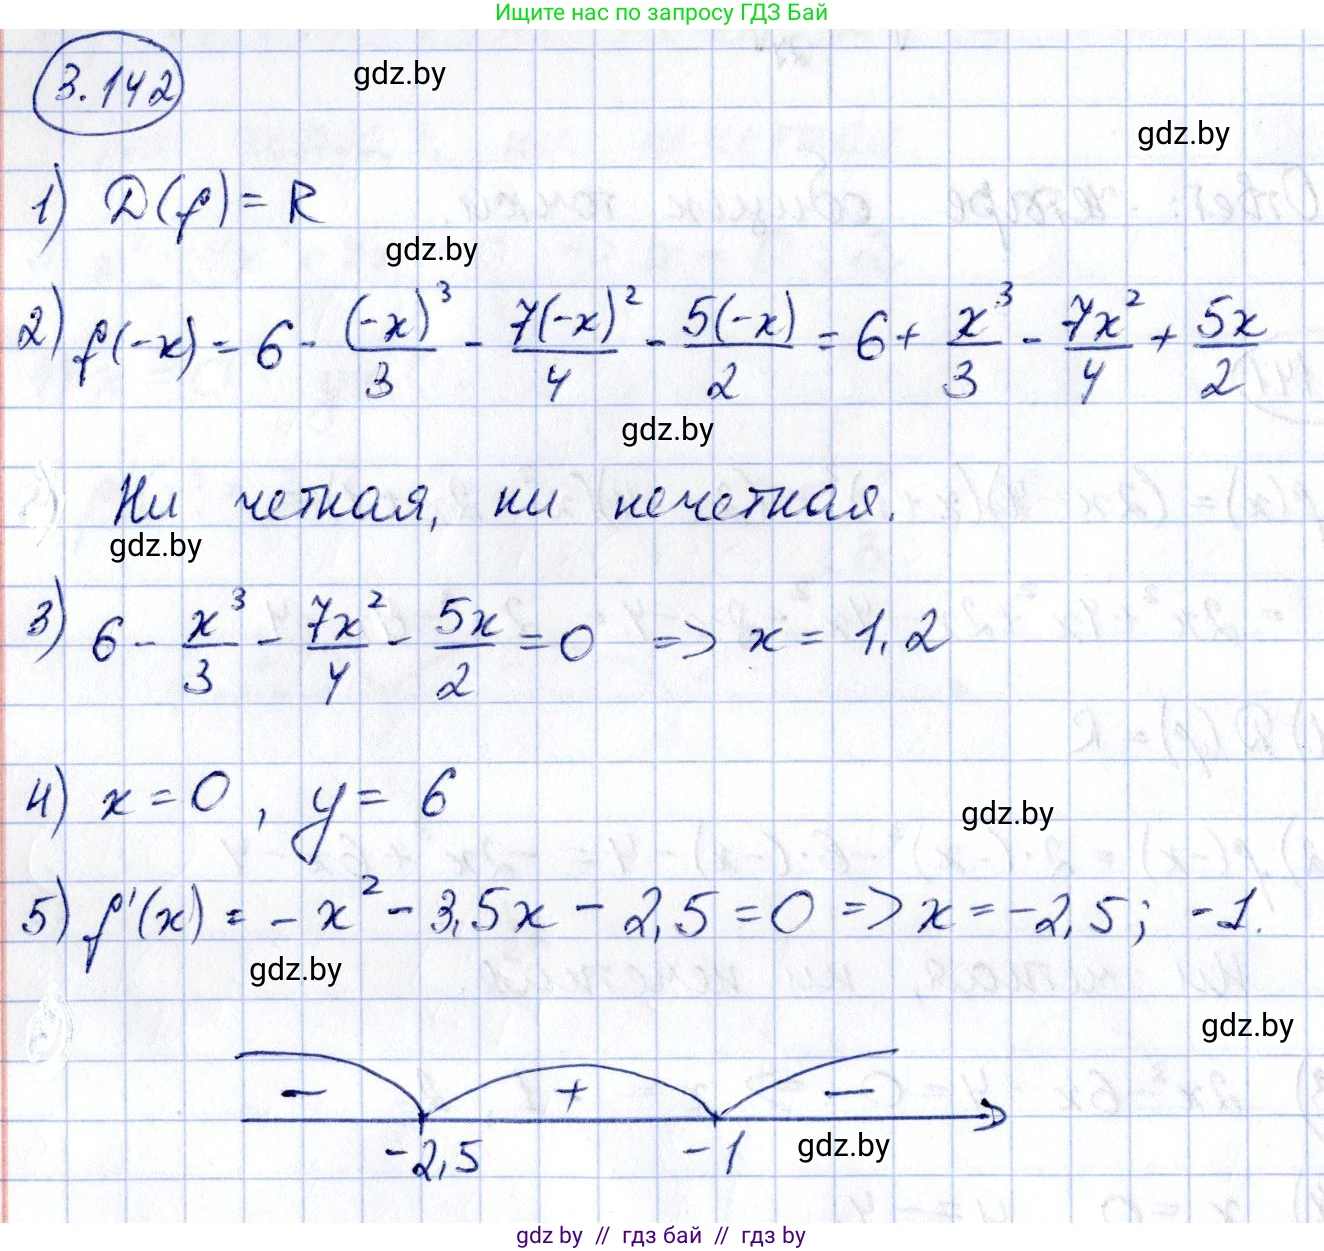 Ищите нас по запросу ГДЗ Бай
3.142
gdz.by
gdz.by
1) D(f) = R
gdz.by
2) f(-x) = 6 - (-x)³/3 - 7(-x)²/4 - 5(-x)/2 = 6 + x³/3 - 7x²/4 + 5x/2
gdz.by
Ни четная, ни нечетная.
gdz.by
3) 6 - x³/3 - 7x²/4 - 5x/2 = 0 => x = 1,2
4) x = 0, y = 6
gdz.by
5) f'(x) = -x² - 3,5x - 2,5 = 0 => x = -2,5; -1.
gdz.by
gdz.by
- + -
-2,5 -1
gdz.by
gdz by // гдз бай // gdz by